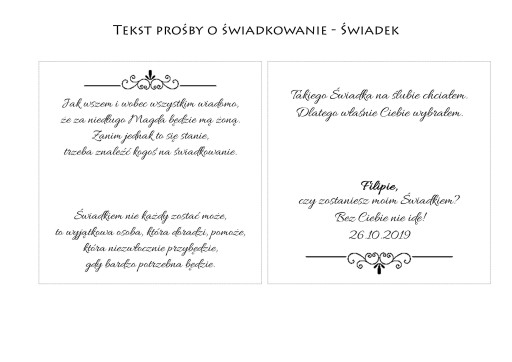 Tekst prośby o świadkowanie - Świadek
Jak wszem i wobec wszystkim wiadomo,
że za niedługo Magda będzie mą żoną.
Zanim jednak to się stanie,
trzeba znaleźć kogoś na świadkowanie.
Świadkiem nie każdy zostać może,
to wyjątkowa osoba, która doradzi, pomoże,
która niezwłocznie przybędzie,
gdy bardzo potrzebna będzie.
Takiego Świadka na ślubie chciałem.
Dlatego właśnie Ciebie wybrałem.
Filipie,
czy zostaniesz moim Świadkiem?
Bez Ciebie nie idę!
26.10.2019